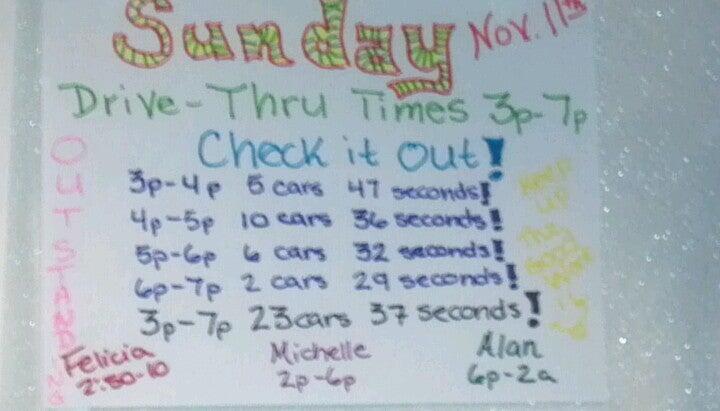 Sunday Nov. 11th
Drive-Thru Times 3p-7p
Check it out!
3p-4p 5 cars 47 seconds!
4p-5p 10 cars 36 seconds!
5p-6p 6 cars 32 seconds!
6p-7p 2 cars 29 seconds!
3p-7p 23 cars 37 seconds!
OUTSTANDING
Keep
up
the
good
Felicia
2:50-10
Michelle
2p-6p
Alan
6p-2a